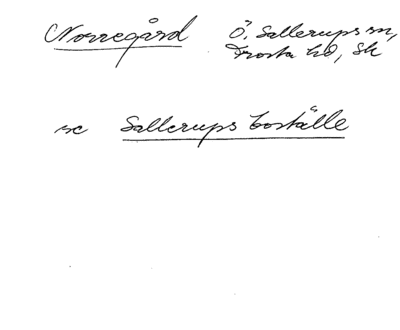 Norregård Ö. Sallerups sn,
Frosta hd, Sk
se Sallerups boställe